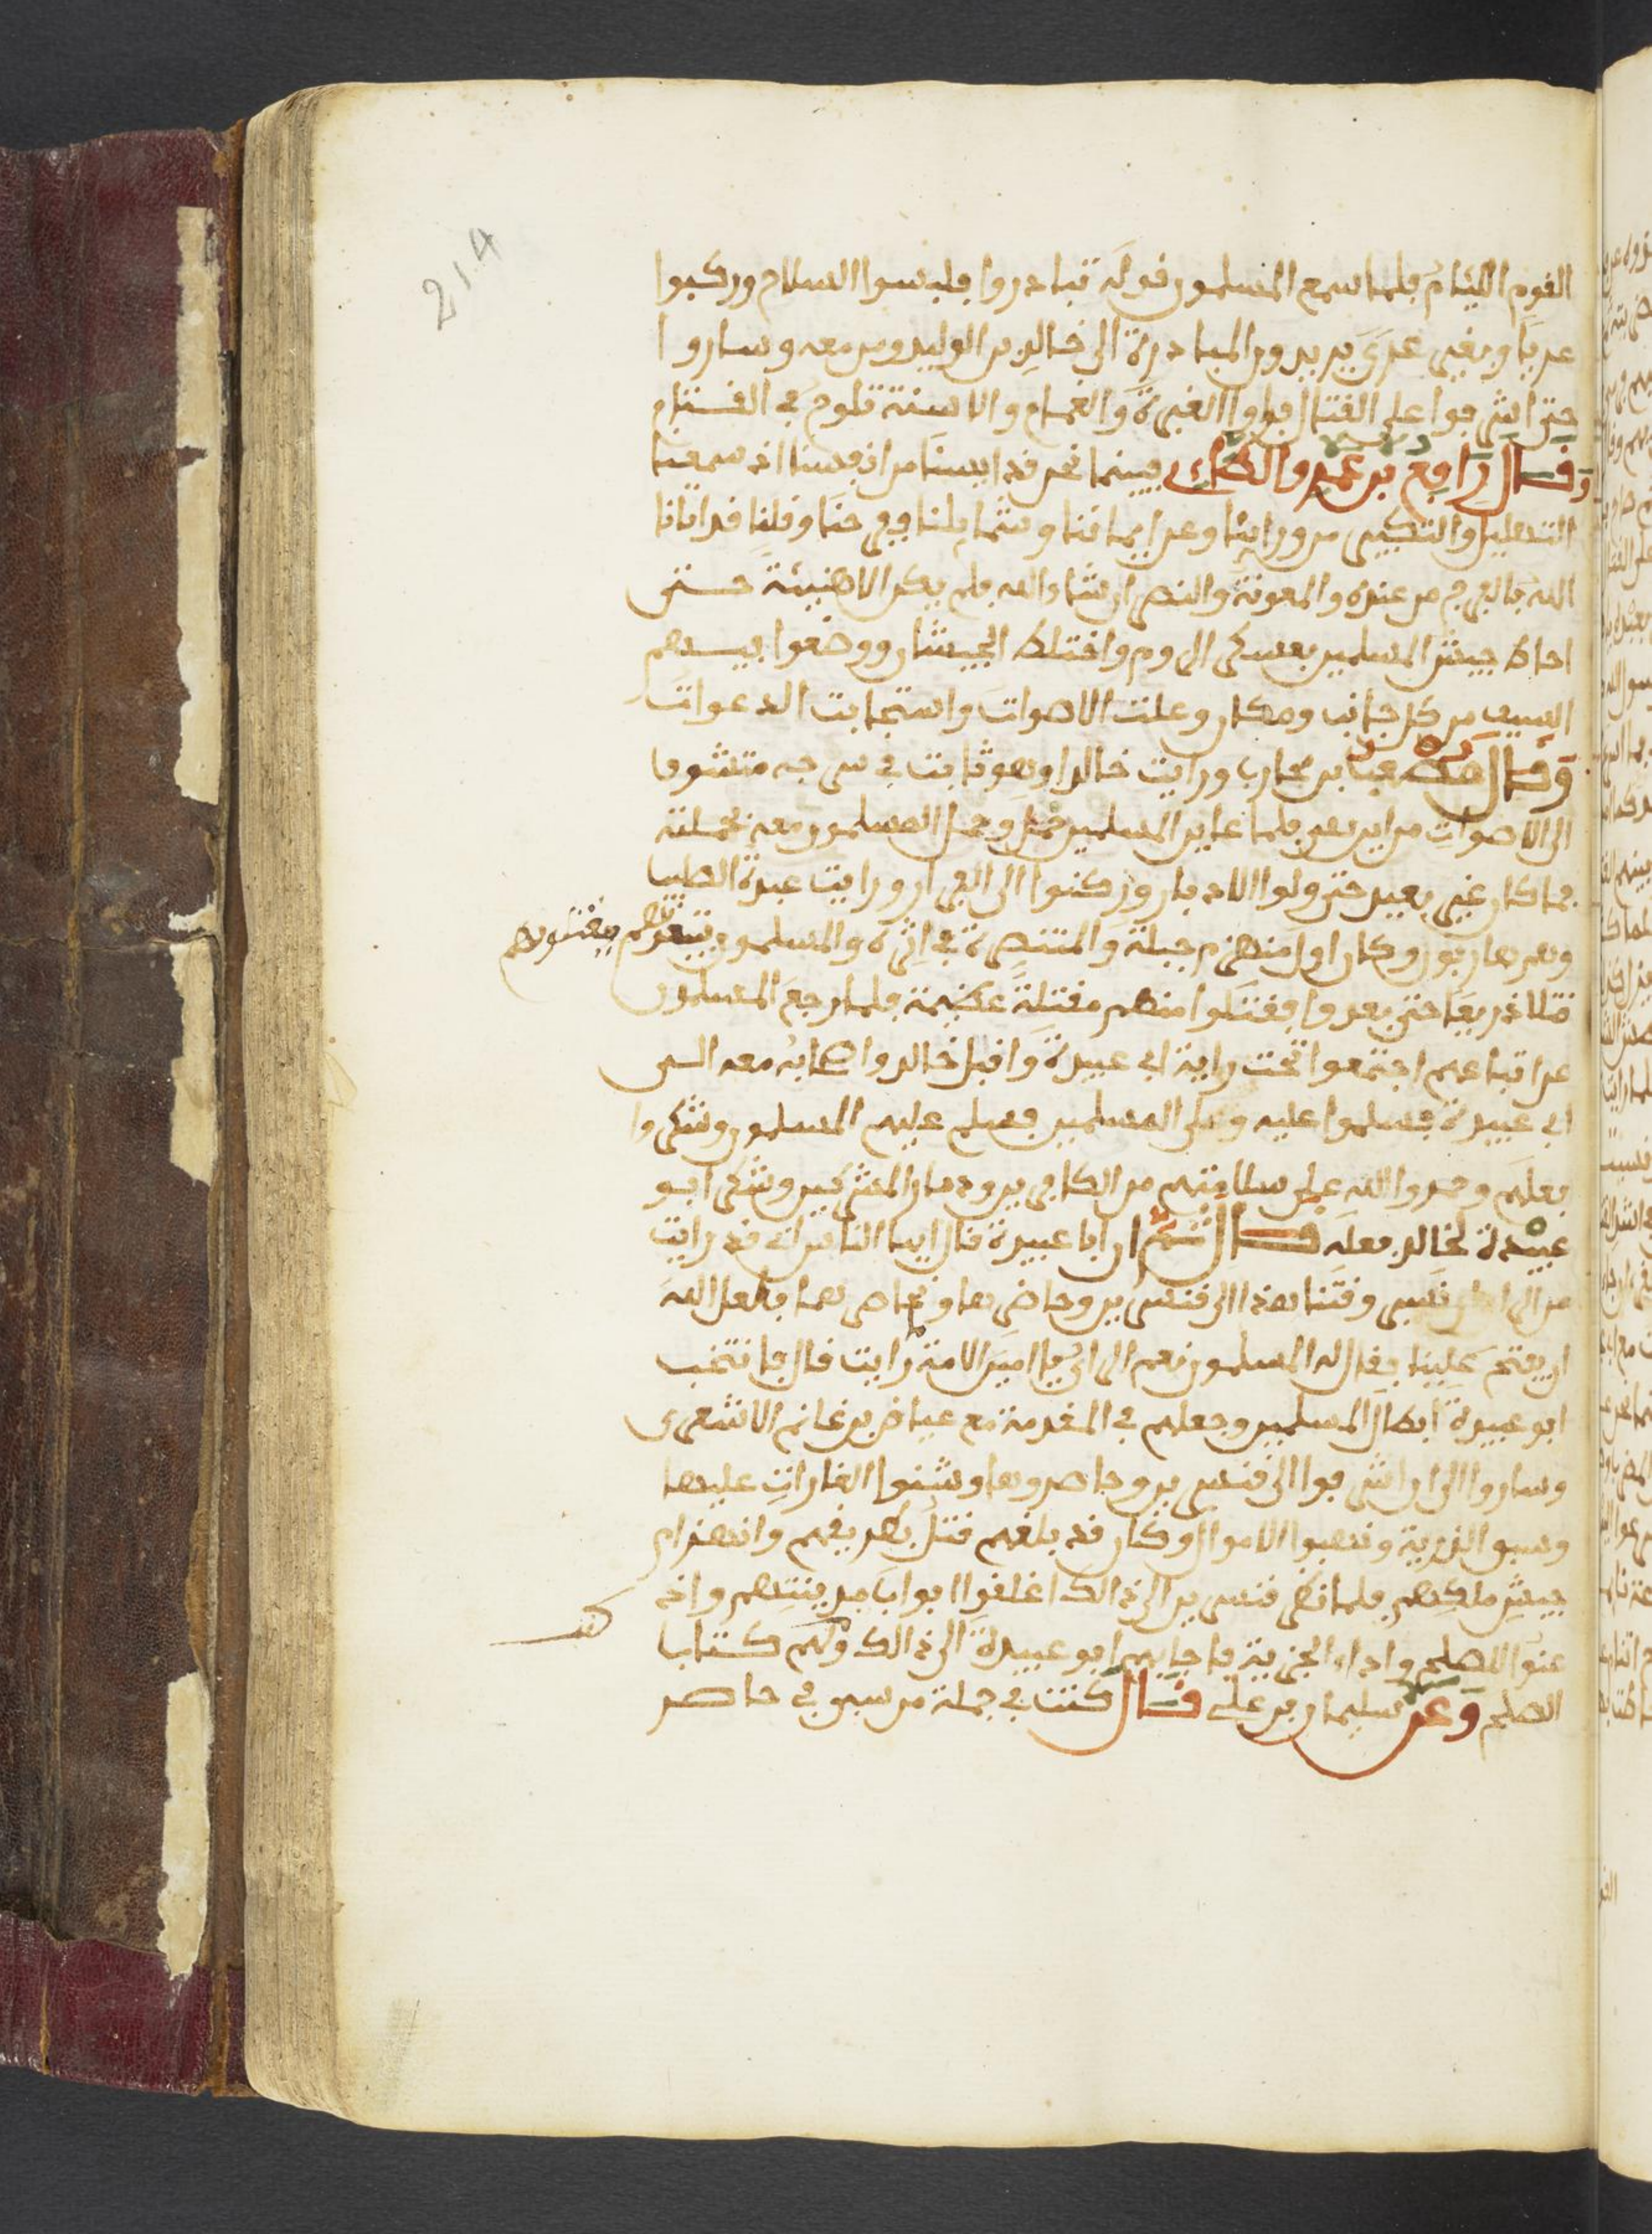 214
القوم اللئام فلما سمع المسلمون قوله تبادروا فلبسوا السلاح وركبوا
عريا وبغير عرى يريدون المبادرة الى خالد بن الوليد ومن معه وساروا
حتى اشرفوا على القتال فراوا الغبرة والغمام والاسنة تلوح في القتام
وقال رافع بن عمرو الطاءى فبينما نحن قد ايسنا من انفسنا اذ سمعنا
التهليل والتكبير من ورائنا وعن ايماننا وشمايلنا ففرحنا وقلنا قد اتانا
الله بالفرج من عنده والمعونة والنصر ان شاء الله فلم يكن الا هنيئة حتى
احاط جيش المسلمين بعسكر الروم واختلط الجيشان ووضعوا بيدهم
السيف من كل جانب ومكان وعلت الاصوات واستجابت الدعوات
وقال بن محارب ورايت خالدا وهو ثابت في سرجه متشوفا
الى الاصوات من اين هي فلما عاين المسلمين حمل وحمل المسلمون معه بحملته
فما كان غير بعيد حتى ولوا الادبار وركنوا الى الفرار ورايت عبدة الصلبا
وهم هاربون وكان اول منهزم جبلة والمتنصرة في اثره والمسلمون تبعوهم يقتلونهم
قتلا ذريعا حتى بعدوا فقتلوا منهم مقتلة عظيمة فلما رجع المسلمون
عن اتباعهم اجتمعوا تحت راية ابي عبيدة واقبل خالد واصحابه معه الى
ابي عبيدة فسلموا عليه وعلى المسلمين فسلم عليهم المسلمون وشكروا
فعلهم وحمدوا الله على سلامتهم من الكافرين ودمار المشركين وشكر ابو
عبيدة لخالد فعله قال ثم ان ابا عبيدة قال ايها الناس اني قد رايت
من الراى ان نسير وقتنا هذا الى قنسرين وحاضرها ونحاصرهما فلعل الله
ان يفتح علينا فقال له المسلمون نعم الراى يا امين الامة رايت قال فانتخب
ابو عبيدة ابطال المسلمين وجعلهم في المقدمة مع عياض بن غانم الاشعرى
وساروا الى ان اشرفوا الى قنسرين وحاصروها وشنوا الغارات عليها
وسبوا الذرية ونهبوا الاموال وكان قد بلغهم قتل بطريقهم وانهزام
جيش ملكهم فلما نظر قنسرين الى ذالك اغلقوا ابواب مدينتهم واذ
عنوا للصلح واداء الجزية فاجابهم ابو عبيدة الى ذالك وكتب لهم كتابا
الصلح وعن سليمان بن علي قال كنت في جملة من سبي في حاصر